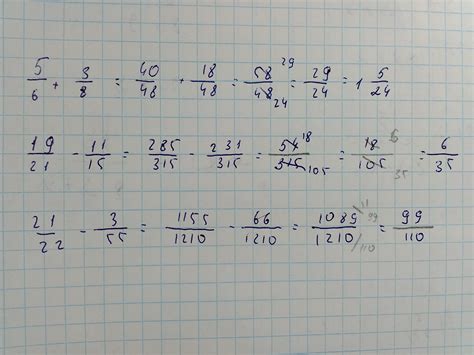 5/6 + 3/8 = 40/48 + 18/48 = 58/48 29 24 = 29/24 = 1 5/24
19/21 - 11/15 = 285/315 - 231/315 = 54/315 18 105 = 18/105 6 35 = 6/35
21/22 - 3/55 = 1155/1210 - 66/1210 = 1089/1210 99 110 = 99/110